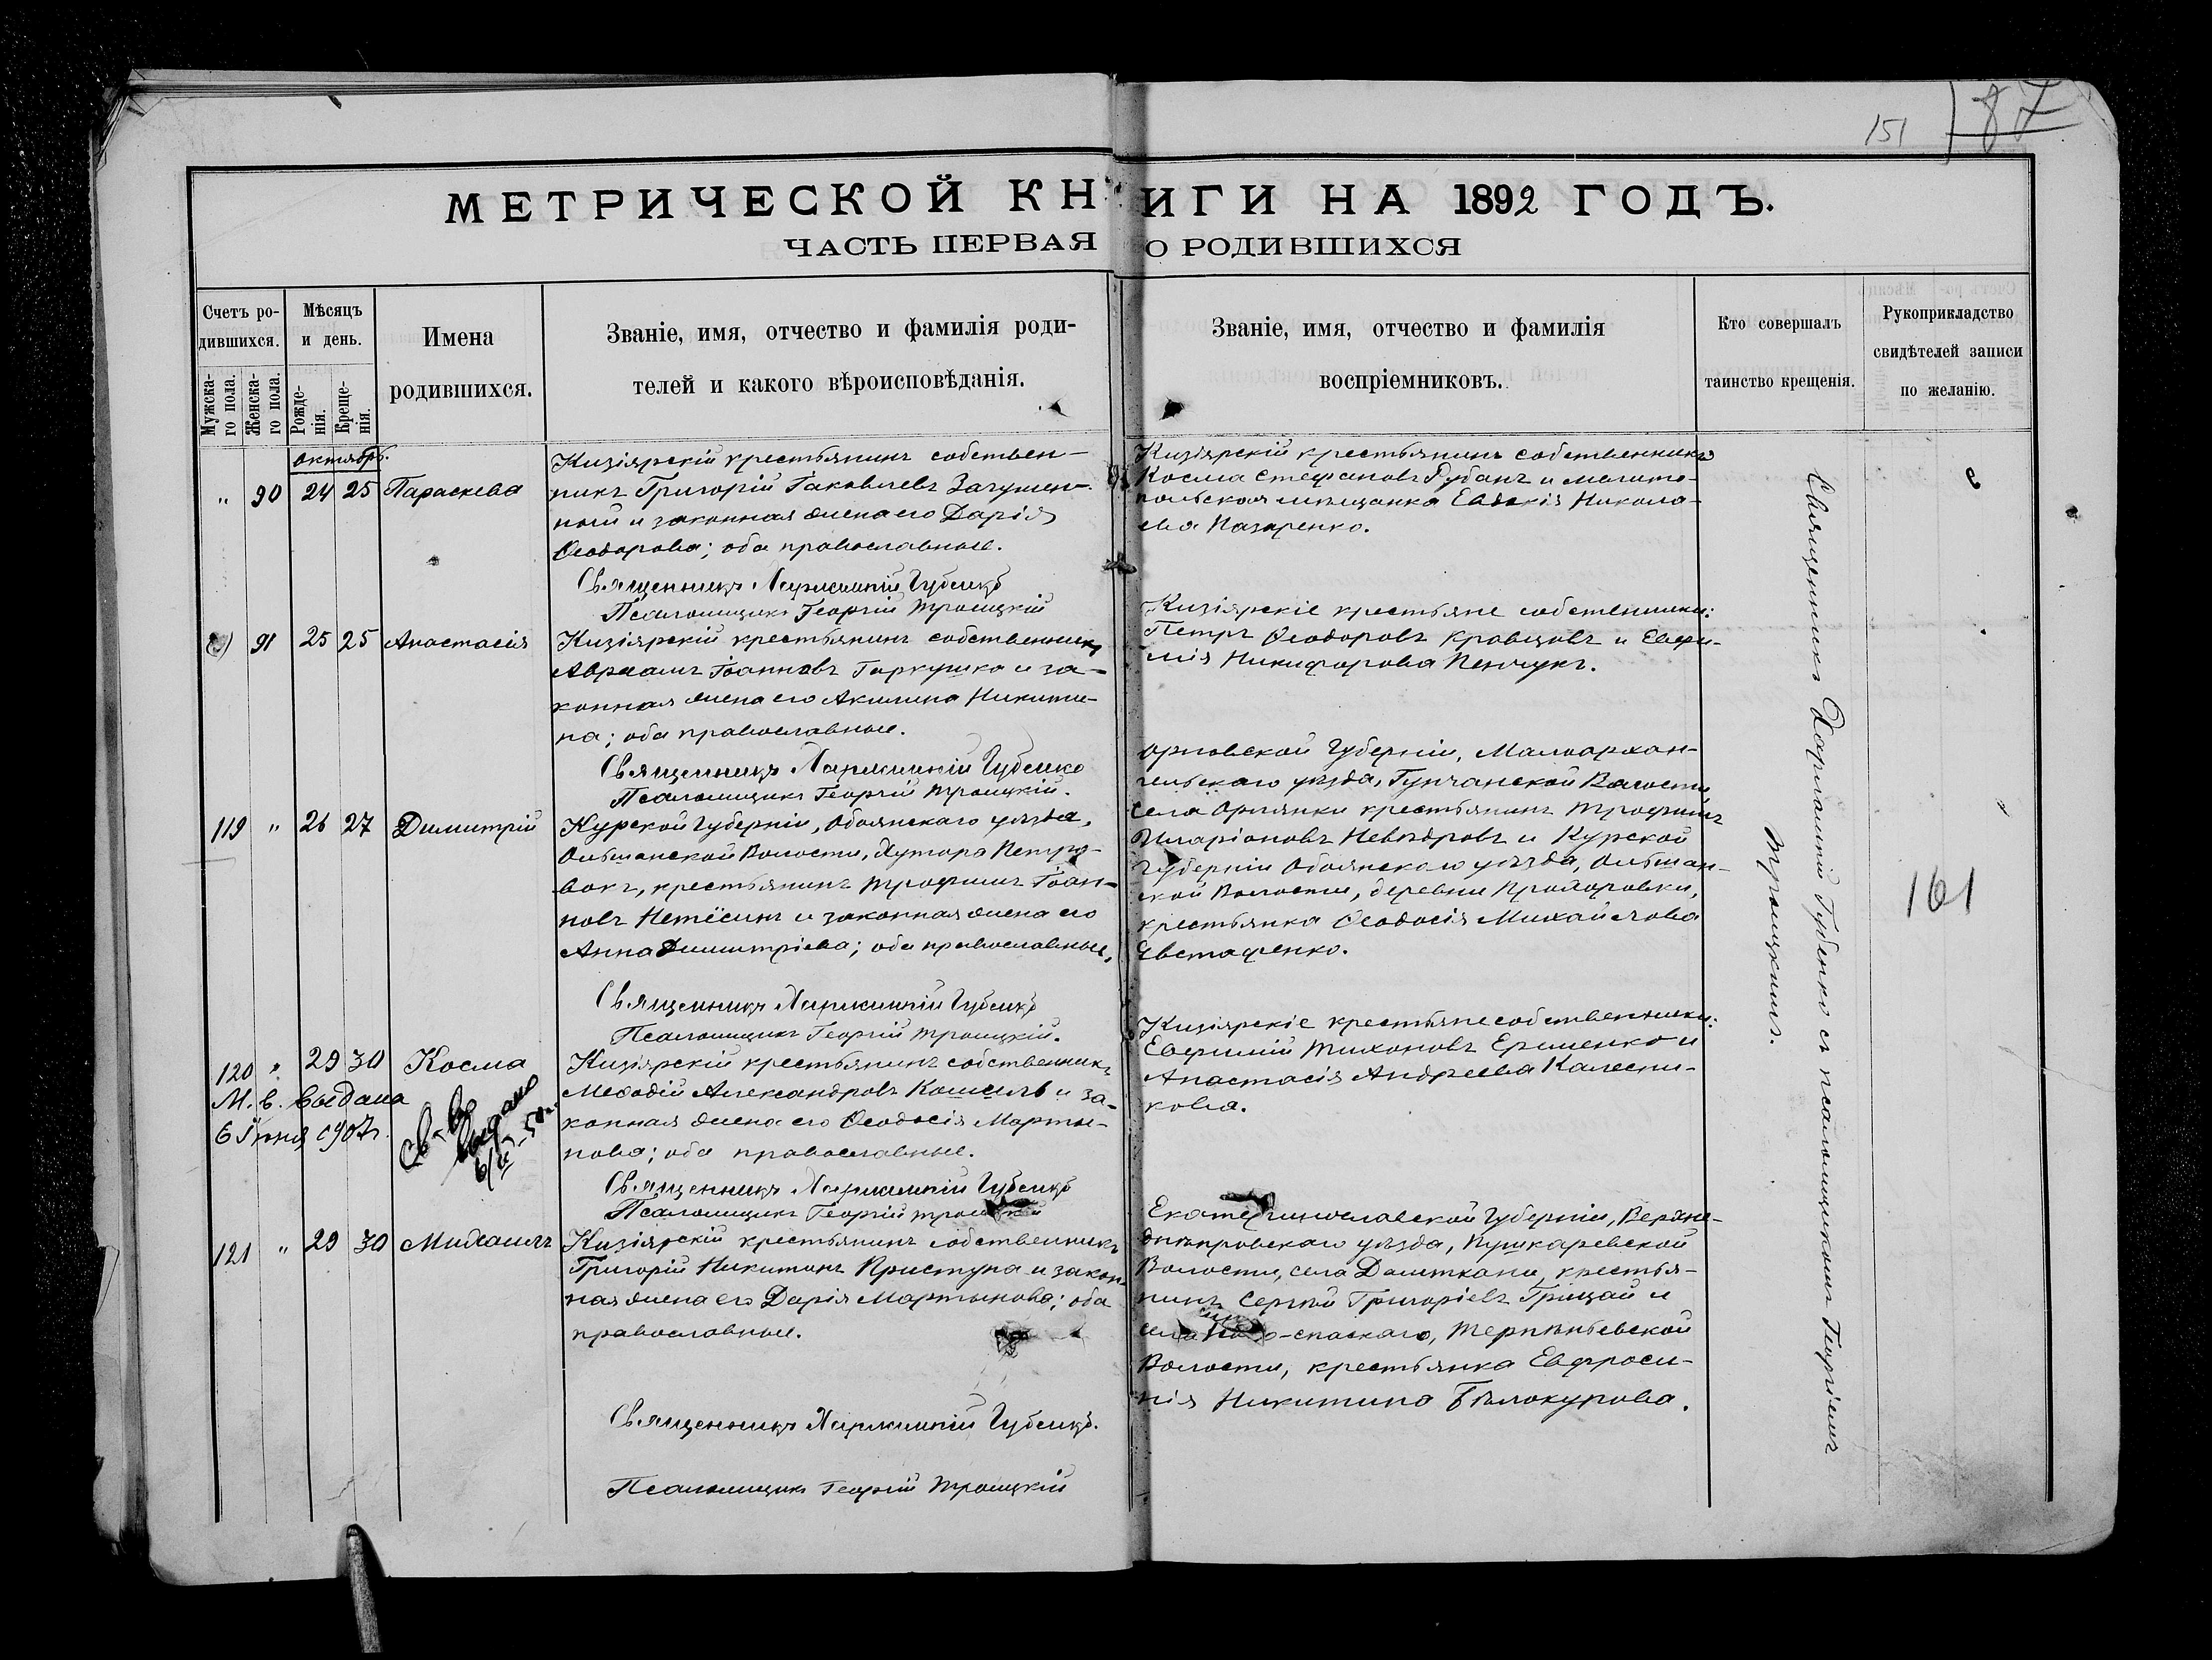 151 87
МЕТРИЧЕСКОЙ КНИГИ НА 1892 ГОДЪ.
ЧАСТЬ ПЕРВАЯ О РОДИВШИХСЯ
Счетъ ро-
дившихся.
Мужска-
го пола.
Женска-
го пола.
Мѣсяцъ
и день.
Рожде-
нія.
Креще-
нія.
Имена
родившихся.
Званіе, имя, отчество и фамилія роди-
телей и какого вѣроисповѣданія.
Званіе, имя, отчество и фамилія
воспріемниковъ.
Кто совершалъ
таинство крещенія.
Рукоприкладство
свидѣтелей записи
по желанію.
октябрь.
" 90 24 25 Параскева
Кизіярскій крестьянинъ собствен-
никъ Григорій Іаковлевъ
ный и законная жена его Дарія
Ѳеодорова; оба православные.
Священникъ Харлампій Губенко
Псаломщикъ Георгій Троицкій
Кизіярскій крестьянинъ собственникъ
Косма Стефановъ Рубанъ и мелито-
польская мѣщанка Евдокія Никола-
ева Назаренко.
91 25 25 Анастасія
Кизіярскій крестьянинъ собственникъ
Авраамъ Іоанновъ Гаркушка и за-
конная жена его Акилина Никити-
на; оба православные.
Священникъ Харлампій Губенко
Псаломщикъ Георгій Троицкій.
Кизіярскіе крестьяне собственники:
Петръ Ѳеодоровъ Кравцовъ и Евфи-
мія Никифорова Пенчукъ.
119 " 26 27 Димитрій
Курской Губерніи, Обоянскаго уѣзда,
Ольшанской Волости, Хутора Петро-
вокъ, крестьянинъ Трофимъ Іоан-
новъ Нетёсинъ и законная жена его
Анна Димитріева; оба православные,
Священникъ Харлампій Губенко
Псаломщикъ Георгій Троицкій.
Орловской Губерніи, Малоархан-
гельскаго уѣзда, Волости
села Орлянки крестьянинъ Трофимъ
Иларіоновъ Невѣдровъ и Курской
Губерніи Обоянскаго уѣзда, Ольшан-
ской Волости, деревни Прохоровки,
крестьянка Ѳеодосія Михайлова
Евстафенко.
161
120 " 29 30 Косма
М. в. выдана
6 Іюня 1907г.
Св-во
выдано
Кизіярскій крестьянинъ собственникъ
Меѳодій Александровъ Кошель и за-
конная жена его Ѳеодосія Марты-
нова; оба православные.
Священникъ Харлампій Губенко
Псаломщикъ Георгій Троицкій
Кизіярскіе крестьяне собственники:
Евфимій Тихоновъ Ерменко и
Анастасія Андреева Калесни-
кова.
121 " 29 30 Михаилъ
Кизіярскій крестьянинъ собственникъ
Григорій Никитинъ Приступа и закон-
ная жена его Дарія Мартынова; оба
православные.
Священникъ Харлампій Губенко.
Псаломщикъ Георгій Троицкій
Екатеринославской Губерніи, Верхне-
днѣпровскаго уѣзда, Пушкаревской
Волости, села Домоткани, крестья-
нинъ Сергѣй Григоріевъ Грицай и
села Ново-спаскаго, Терпѣньевской
Волости, крестьянка Евфроси-
нія Никитина Бѣлокурова.
Священникъ Харлампій Губенко съ псаломщикомъ Георгіемъ
Троицкимъ.